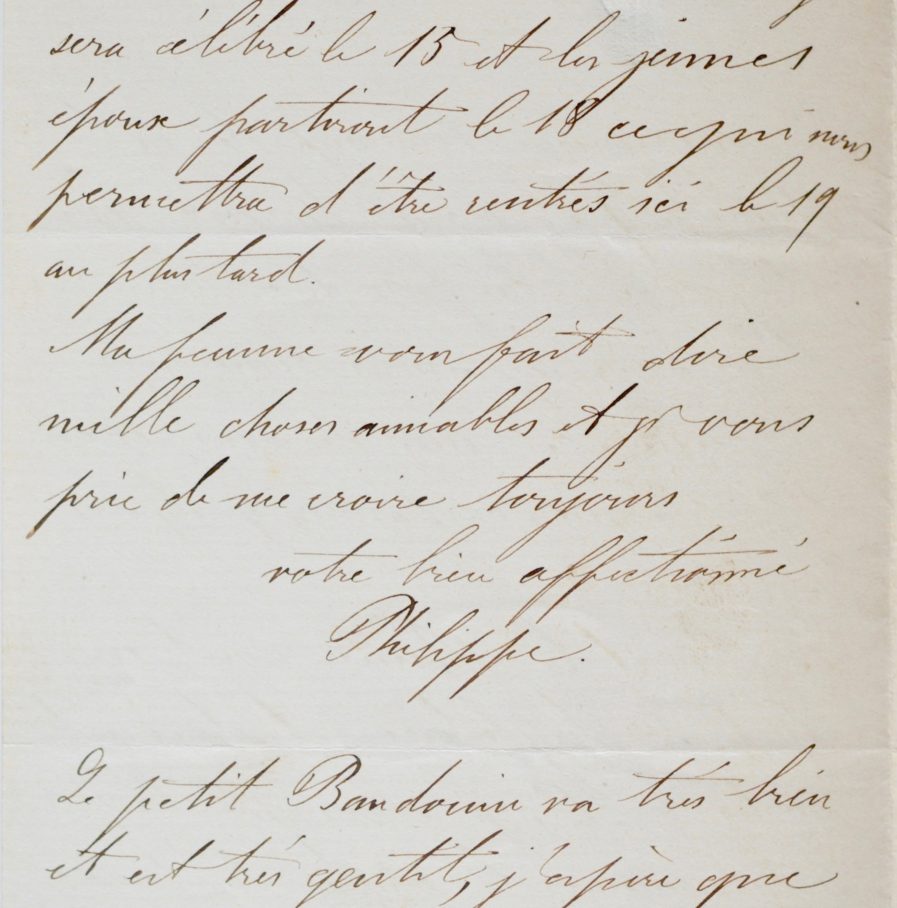 sera célébré le 15 et les jeunes
époux partiront le 18 ce qui nous
permettra d'être rentrés ici le 19
au plus tard.
Ma femme vous fait dire
mille choses aimables et je vous
prie de me croire toujours
votre bien affectionné
Philippe.
Le petit Baudouin va trés bien
et est trés gentil, j'espère que